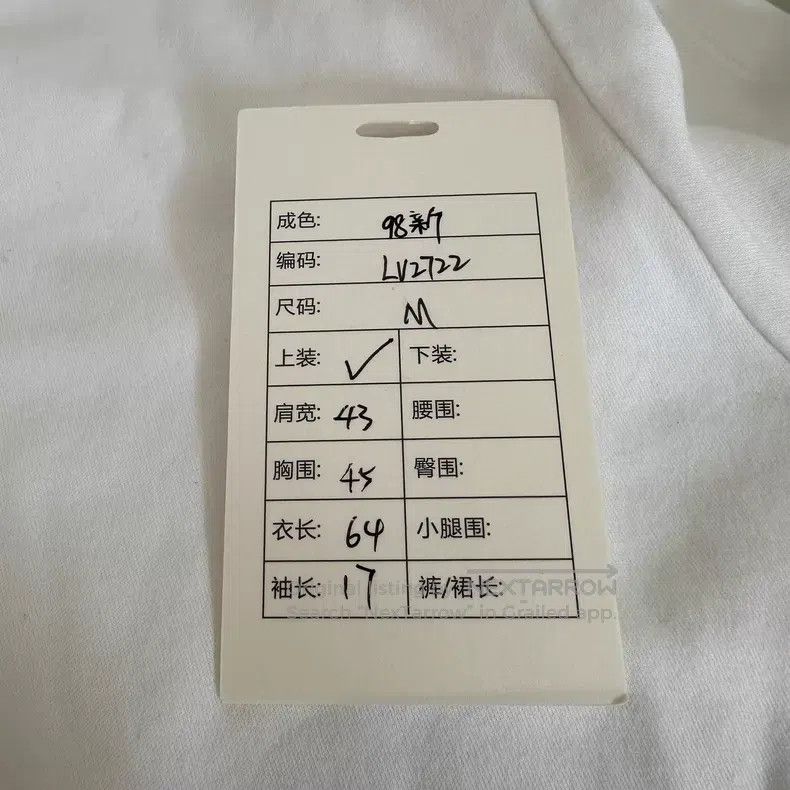 成色: 98新
编码: LV2722
尺码: M
上装: ✓ 下装:
肩宽: 43 腰围:
胸围: 45 臀围:
衣长: 64 小腿围:
袖长: 17 裤/裙长:
Original listing by NEXTARROW
Search "NexTarrow" in Grailed app.